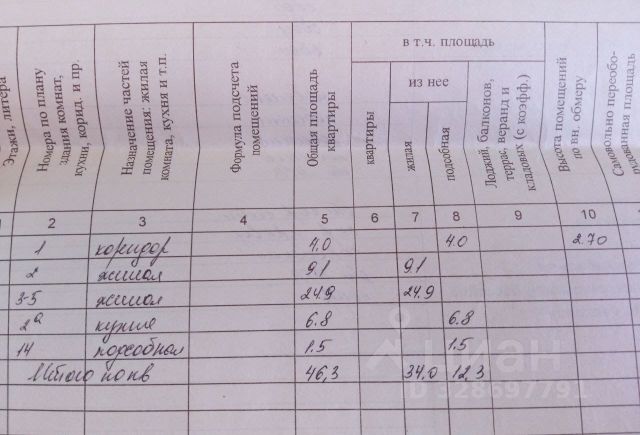 Этажи, литера
Номера по плану
здания комнат,
кухни, корид. и пр.
Назначение частей
помещения: жилая
комната, кухня и т.п.
Формула подсчета
помещений
Общая площадь
квартиры
в т.ч. площадь
квартиры
из нее
жилая
подсобная
Лоджий, балконов,
террас, веранд и
кладовых (с коэфф.)
Высота помещений
по вн. обмеру
Самовольно переобо-
рудованная площадь
2 3 4 5 6 7 8 9 10 11
1 коридор 4.0 4.0 2.70
2 жилая 9.1 9.1
3-5 жилая 24.9 24.9
2а кухня 6.8 6.8
14 подсобная 1.5 1.5
Итого по кв 46,3 34,0 12,3
циан
ID 328697791